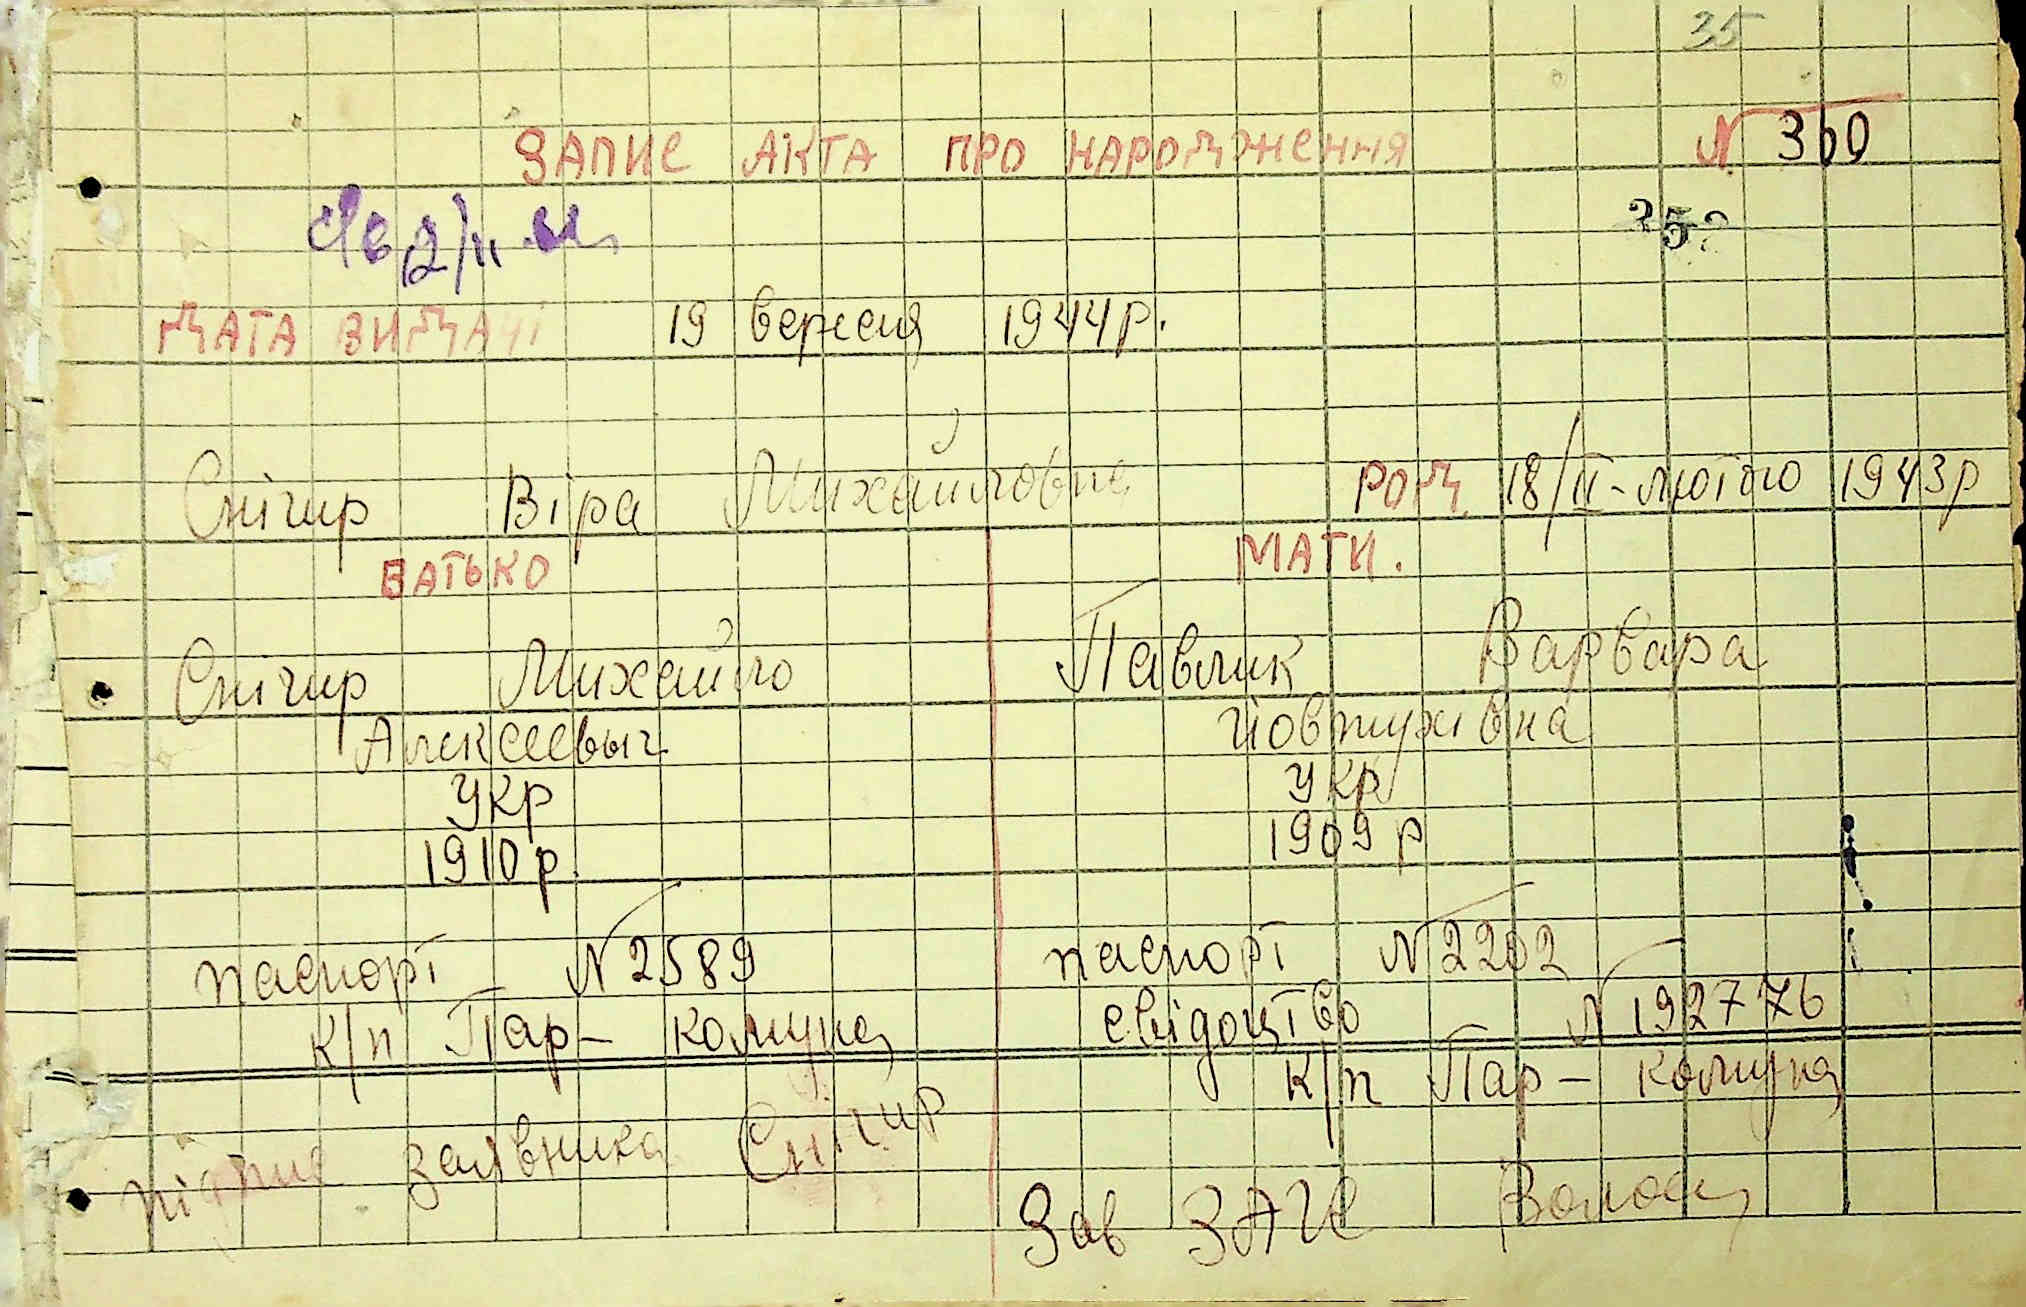 35
ЗАПИС АКТА ПРО НАРОДЖЕННЯ № 360
ДАТА ВИДАЧІ 19 вересня 1944 р.
Снігир Віра Михайловна РОД. 18/II - лютого 1943 р
БАТЬКО МАТИ.
Снігир Михайло Павлик Варвара
Алексеевыч Йовтухівна
укр укр
1910 р. 1909 р
паспорт № 2589 паспорт № 2202
к/п Пар - комуна свідоцтво № 192776
к/п Пар - комуна
підпис заявника Снігир
Зав ЗАГС